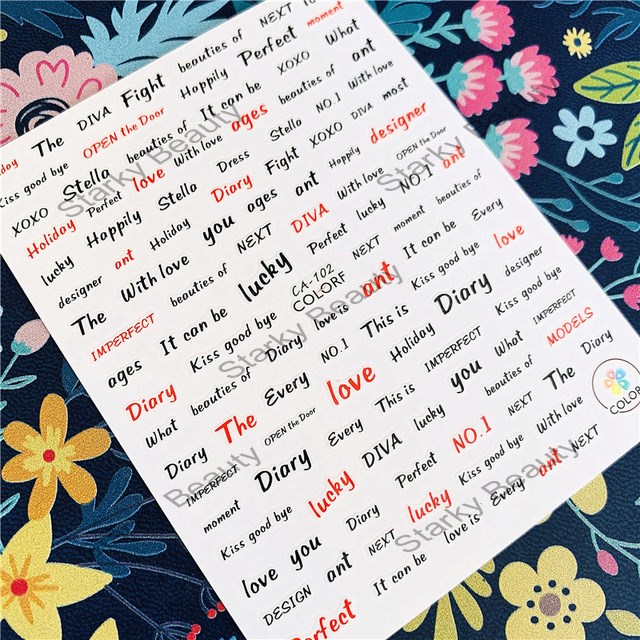 The DIVA Fight beauties of NEXT
OPEN the Door Happily Perfect moment
Kiss good bye beauties of It can be XOXO What
XOXO Stella ages beauties of ant
Holiday Perfect love With love Stella NO.1 With love
lucky Happily Stella Dress Fight XOXO DIVA most
designer ant Holiday Diary Happily designer
The With love you ages ant With love OPEN the Door
IMPERFECT beauties of NEXT DIVA lucky NO.1 ant
ages It can be lucky Perfect moment beauties of
Diary Kiss good bye CA-102 NEXT It can be Every
COLORF
What beauties of Diary love is ant Kiss good bye love
Diary The Every NO.1 This is Diary designer
IMPERFECT OPEN the Door love Holiday IMPERFECT Kiss good bye IMPERFECT
moment Diary Every This is you What MODELS
Kiss good bye lucky DIVA lucky beauties of Diary
love you Diary Perfect NO.1 NEXT The
DESIGN ant NEXT lucky Kiss good bye With love
Perfect It can be love is Every ant NEXT
COLORF
Starky Beauty
Starky Beauty
Starky Beauty
Beauty
Starky Beauty
Starky